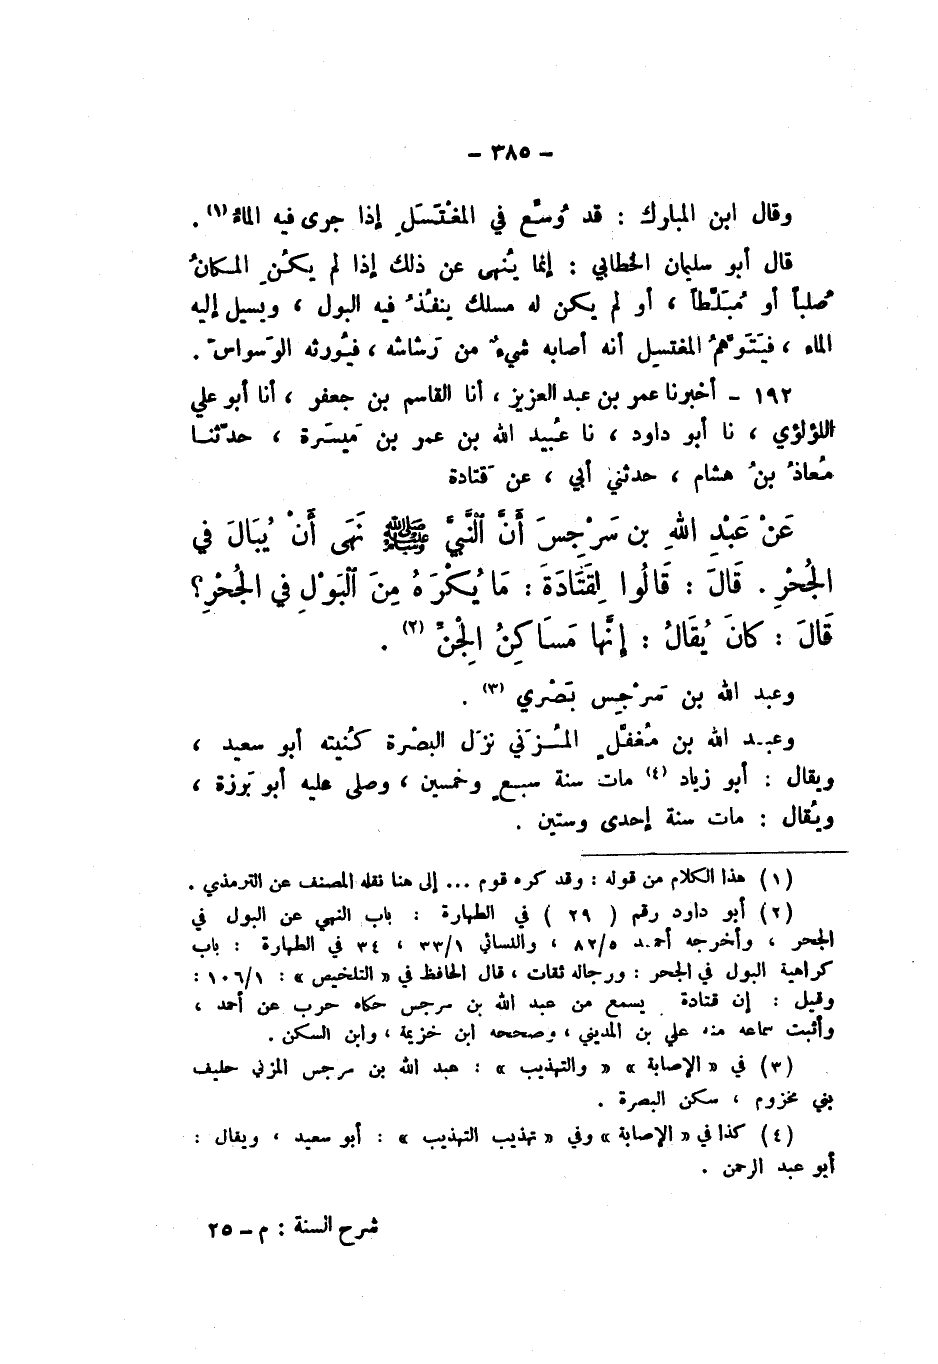 - ٣٨٥ -
وقال ابن المبارك : قد وُسِّع في المغْتَسَلِ إذا جرى فيه الماءُ (١) .
قال أبو سليمان الخطابي : إنما يُنهى عن ذلك إذا لم يكُنِ المكانُ
صُلباً أو مُبَلَّطاً ، أو لم يكن له مسلك ينفُذُ فيه البول ، ويسيل إليه
الماء ، فيَتَوهَّمُ المغتسِل أنه أصابه شيءٌ من رَشاشه ، فيُورثه الوَسواسَ .
١٩٢ - أخبرنا عمر بن عبد العزيز ، أنا القاسم بن جعفر ، أنا أبو علي
اللؤلؤي ، نا أبو داود ، نا عُبيد الله بن عمر بن مَيسَرة ، حدَّثنا
مُعاذُ بنُ هشام ، حدثني أبي ، عن قَتادة
عَنْ عَبْدِ اللهِ بن سَرْجِسَ أَنَّ ٱلنَّبِيَّ ﷺ نَهَى أَنْ يُبَالَ في
الجُحْرِ . قَالَ : قَالُوا لِقَتَادَةَ : مَا يُكْرَهُ مِنَ ٱلبَوْلِ في الجُحْرِ؟
قَالَ : كانَ يُقَالُ : إنَّها مَسَاكِنُ الجِنِّ (٢) .
وعبد الله بن سَرْجِس بَصْري (٣) .
وعبد الله بن مُغفَّلٍ المُزَني نزَل البصْرة كُنيته أبو سعيد ،
ويقال : أبو زياد (٤) مات سنة سبعٍ وخمسين ، وصلى عليه أبو بَرزة ،
ويُقال : مات سنة إحدى وستين .
(١) هذا الكلام من قوله : وقد كره قوم ... إلى هنا نقله المصنف عن الترمذي .
(٢) أبو داود رقم ( ٢٩ ) في الطهارة : باب النهي عن البول في
الجحر ، وأخرجه أحمد ٨٢/٥ ، والنسائي ٣٣/١ ، ٣٤ في الطهارة : باب
كراهية البول في الجحر : ورجاله ثقات ، قال الحافظ في « التلخيص » : ١٠٦/١ :
وقيل : إن قتادة يسمع من عبد الله بن سرجس حكاه حرب عن أحمد ،
وأثبت سماعه منه علي بن المديني ، وصححه ابن خزيمة ، وابن السكن .
(٣) في « الإصابة » « والتهذيب » : عبد الله بن سرجس المزني حليف
بني مخزوم ، سكن البصرة .
(٤) كذا في « الإصابة » وفي « تهذيب التهذيب » : أبو سعيد ، ويقال :
أبو عبد الرحمن .
شرح السنة : م - ٢٥